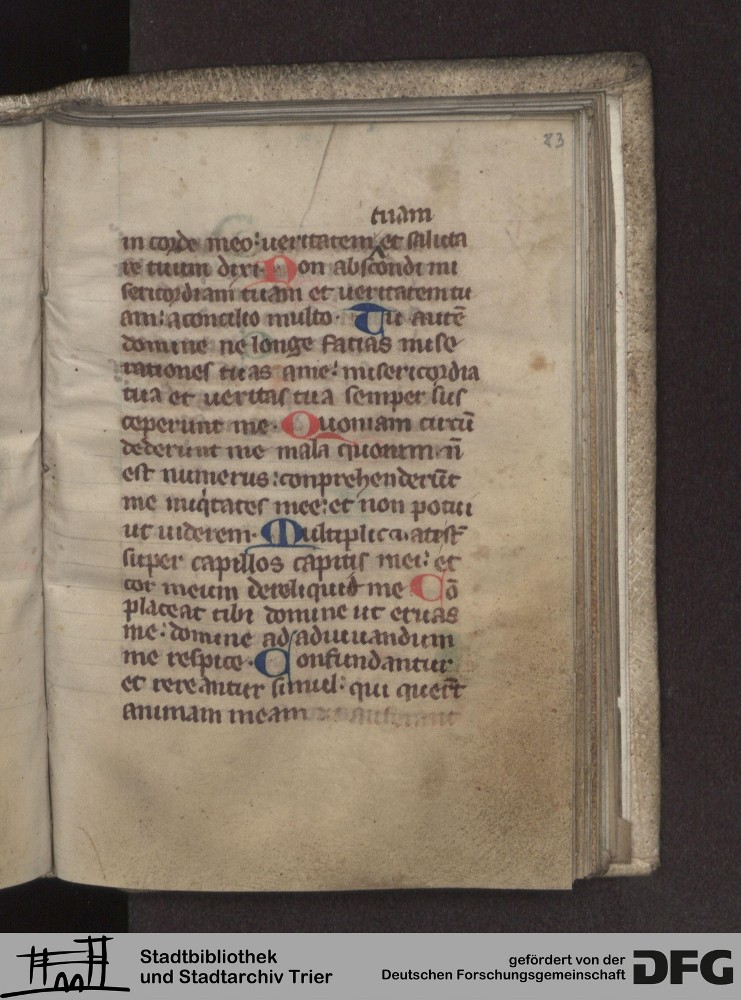 83
tuam
in corde meo: ueritatem et saluta
re tuum dixi. Non abscondi mi
sericordiam tuam et ueritatem tu
am: a concilio multo. Tu autē
domine ne longe facias mise
rationes tuas a me: misericordia
tua et ueritas tua semper sus
ceperunt me. Quoniam circū
dederunt me mala quorum n̄
est numerus: conprehenderūt
me iniq̇tates mee: et non potui
ut uiderem. Multiplicate st̄
super capillos capitis mei: et
cor meum dereliquid me Cō
placeat tibi domine ut eruas
me: domine ad adiuuandum
me respice. Confundantur
et rereantur simul: qui querūt
animam meam
Stadtbibliothek
und Stadtarchiv Trier
gefördert von der
Deutschen Forschungsgemeinschaft
DFG